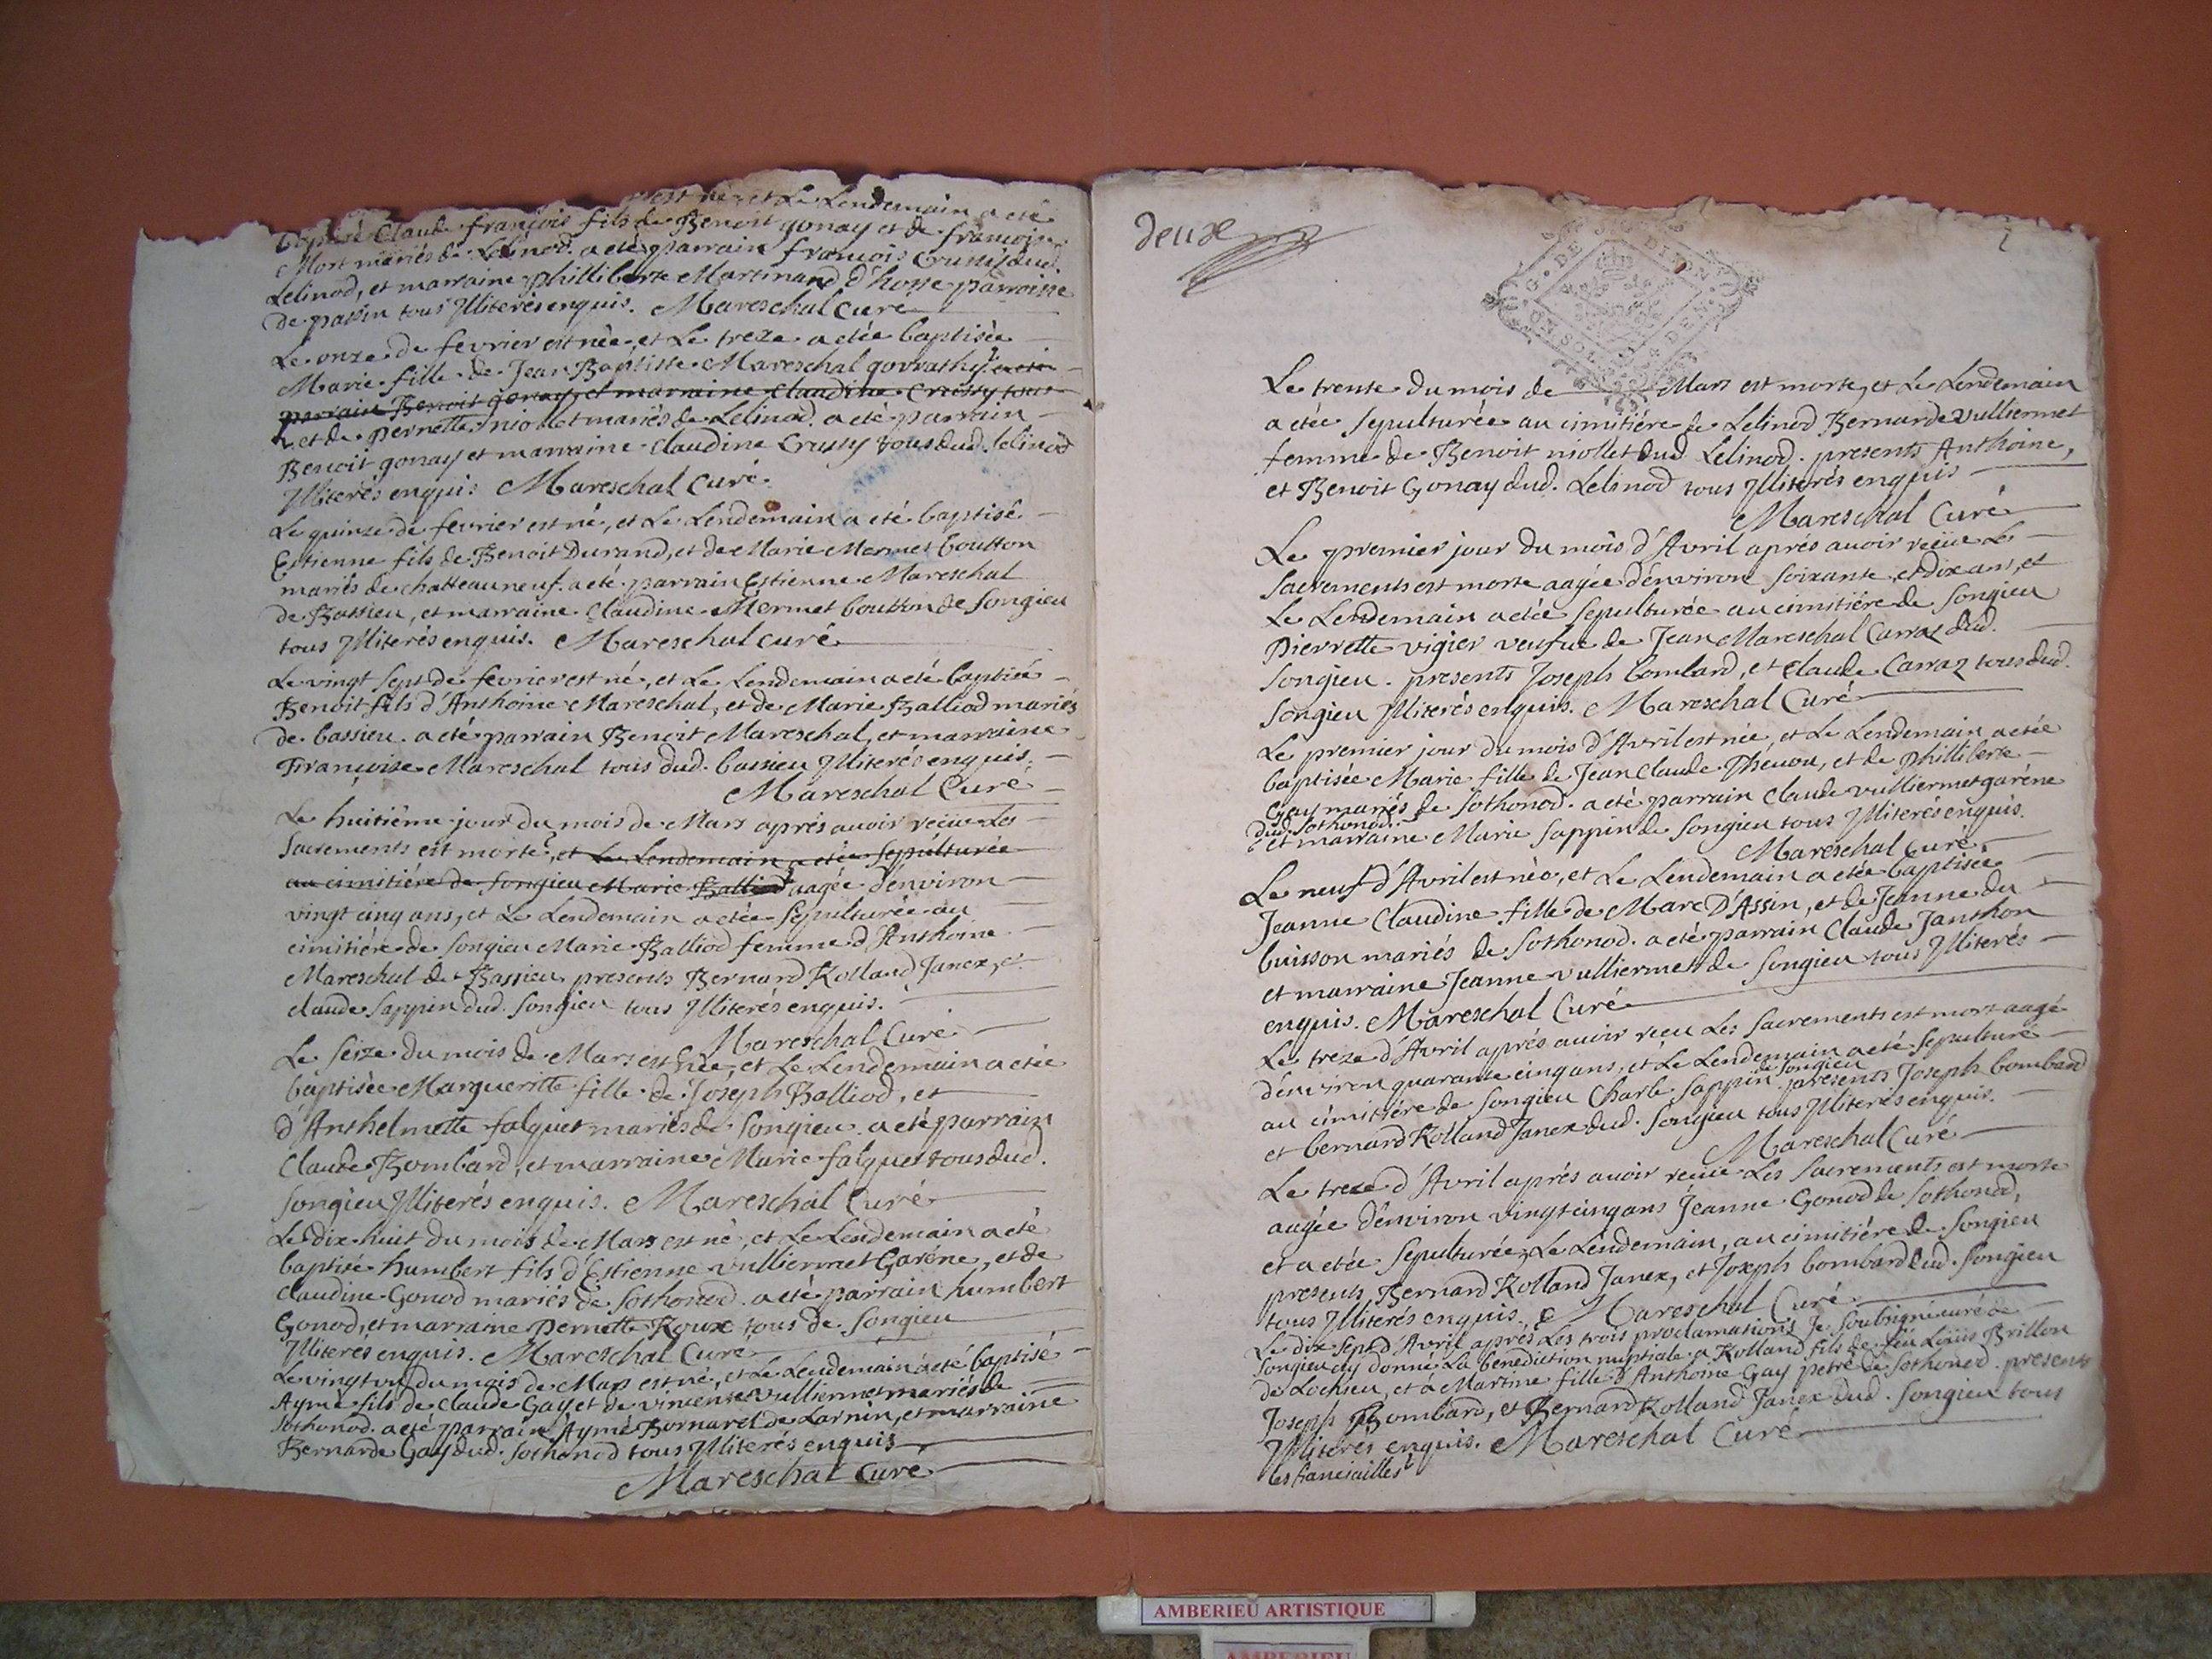 est né, et Le Lendemain a eté
baptisé Claude françois fils de Benoit gonay et de françoise
Mort mariés de Lelinod. a eté parrain françois Crussy dud.
Lelinod, et marraine philliberte Martinand d'hosse parroisse
de passin tous Jlliterés enquis. Mareschal Curé
Le onze de fevrier est née, et Le treze a etée baptisée
Marie fille de Jean Baptiste Mareschal govrathy
parrain Benoit gonay et marraine Claudine Crussy tous
et de pernette niollet mariés de Lelinod. a eté parrain
Benoit gonay et marraine Claudine Crussy tous dud. lelinod
Jlliterés enquis Mareschal Curé.
Le quinze de fevrier est né, et Le Lendemain a eté baptisé
Estienne fils de Benoit Durand, et de Marie Mermet boutton
mariés de chatteauneuf. a eté parrain Estienne Mareschal
de Bassieu, et marraine Claudine Mermet boutton de Songieu
tous Jlliterés enquis. Mareschal curé
Le vingt sept de fevrier est né, et Le Lendemain a eté baptisé
Benoit fils d'Anthoine Mareschal, et de Marie Balliod mariés
de bassieu. a eté parrain Benoit Mareschal, et marraine
Françoise Mareschal tous dud. bassieu Jlliterés enquis.
Mareschal Curé
Le huitiême jour du mois de Mars aprés auoir receue Les
Sacrements est morte, et Le Lendemain a etée Sepulturée
au cimitiére de Songieu Marie Balliod aagée d'environ
vingt cinq ans, et Le Lendemain a etée Sepulturée au
cimitiére de Songieu Marie Balliod femme d'Anthoine
Mareschal de Bassieu, presents Bernard Rolland Janex, et
claude Sappin dud. Songieu tous Jlliterés enquis.
Mareschal Curé
Le Seize du mois de Mars est née, et Le Lendemain a etée
baptisée Margueritte fille de Joseph Balliod, et
d'Anthelmette falquet mariés de Songieu. a eté parrain
Claude Bombard, et marraine Marie falquet tous dud.
Songieu Jlliterés enquis. Mareschal Curé
Le dix huit du mois de Mars est né, et Le Lendemain a eté
baptisé humbert fils d'Estienne Vulliermet Garéne, et de
Claudine Gonod mariés de Sothonod. a eté parrain humbert
Gonod, et marraine Pernette Roux tous de Songieu
Jlliterés enquis. Mareschal Curé
Le vingt un du mois de Mars est né, et Le Lendemain a eté baptisé
Aymé fils de Claude Gay et de vincenze vulliermet mariés de
Sothonod. a eté parrain Aymé Bornarel de Larnin, et marraine
Bernarde Gay dud. Sothonod tous Jlliterés enquis
Mareschal Curé
deuxe
2
G. DE DIION
UN SOL 4 DEN.
Le trente du mois de Mars est morte, et Le Lendemain
a etée Sepulturée au cimitiére de Lelinod Bernarde Vulliermet
femme de Benoit niollet dud Lelinod. presents Anthoine,
et Benoit Gonay dud. Lelinod tous Jlliterés enquis
Mareschal Curé
Le premier jour du mois d'Avril aprés auoir receue Les
Sacrements est morte aagée d'environ Soixante et dix ans, et
Le Lendemain a etée Sepulturée au cimitiére de Songieu
Pierrette vigier veufue de Jean Mareschal Carraz dud.
Songieu. presents Joseph bombard, et Claude Carraz tous dud.
Songieu Jlliterés enquis. Mareschal Curé
Le premier jour du mois d'Avril est née, et Le Lendemain a etée
baptisée Marie fille de Jean Claude Thevou, et de Philliberte
Gay mariés de Sothonod. a eté parrain Claude vulliermet garéne
dud. Sothonod.
et marraine Marie Sappin de Songieu tous Jlliterés enquis.
Mareschal Curé
Le neuf d'Avril est née, et Le Lendemain a etée baptisée
Jeanne Claudine fille de Marc D'Assin, et de Jeanne du
buisson mariés de Sothonod. a eté parrain Claude Janthon
et marraine Jeanne vulliermet de Songieu tous Jlliterés
enquis. Mareschal Curé
Le treze d'Avril aprés auoir receu Les Sacrements est mort aagé
d'environ quarante cinq ans, et Le Lendemain a eté Sepulturé
de Songieu
au cimitiére de Songieu Charle Sappin presents Joseph bombard
et bernard Rolland Janex dud. Songieu tous Jlliterés enquis.
Mareschal Curé
Le treze d'Avril aprés auoir receue Les Sacrements est morte
aagée d'environ vingt cinq ans Jeanne Gonod de Sothonod,
et a etée Sepulturée Le Lendemain, au cimitiére de Songieu
presents Bernard Rolland Janex, et Joseph bombard dud. Songieu
tous Jlliterés enquis. Mareschal Curé
Le dix Sept d'Avril aprés Les trois proclamations Je Soubsigné curé de
Songieu ay donné La benediction nuptiale a Rolland fils de feu Loüis Brillon
de Lochieu, et a Martine fille d'Anthoine Gay petré de Sothonod. presents
Joseph Bombard, et Bernard Rolland Janex dud. Songieu tous
Jlliterés enquis. Mareschal Curé
les fianciailles
AMBERIEU ARTISTIQUE
AMBERIEU